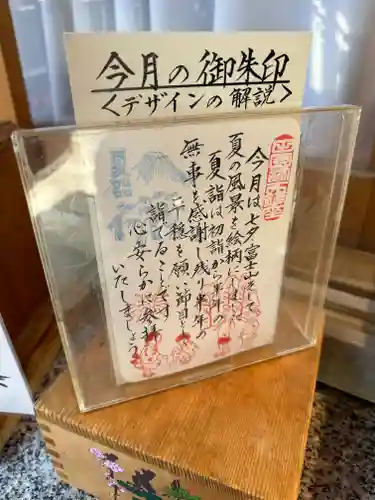 今月の御朱印
＜デザインの解説＞
今月は七夕、富士山そして
夏の風景を絵柄にしました
夏詣は初詣から半年の
無事を感謝し残り半年の
平穏を願い節目と
詣でることです
心安らかに参拝
いたしましょう